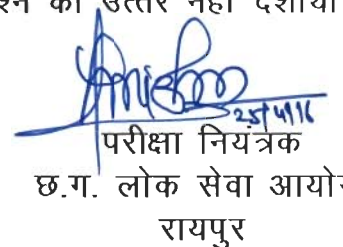 का उत्तर नहीं दर्शाया
25/4/16
परीक्षा नियंत्रक
छ.ग. लोक सेवा आयो
रायपुर